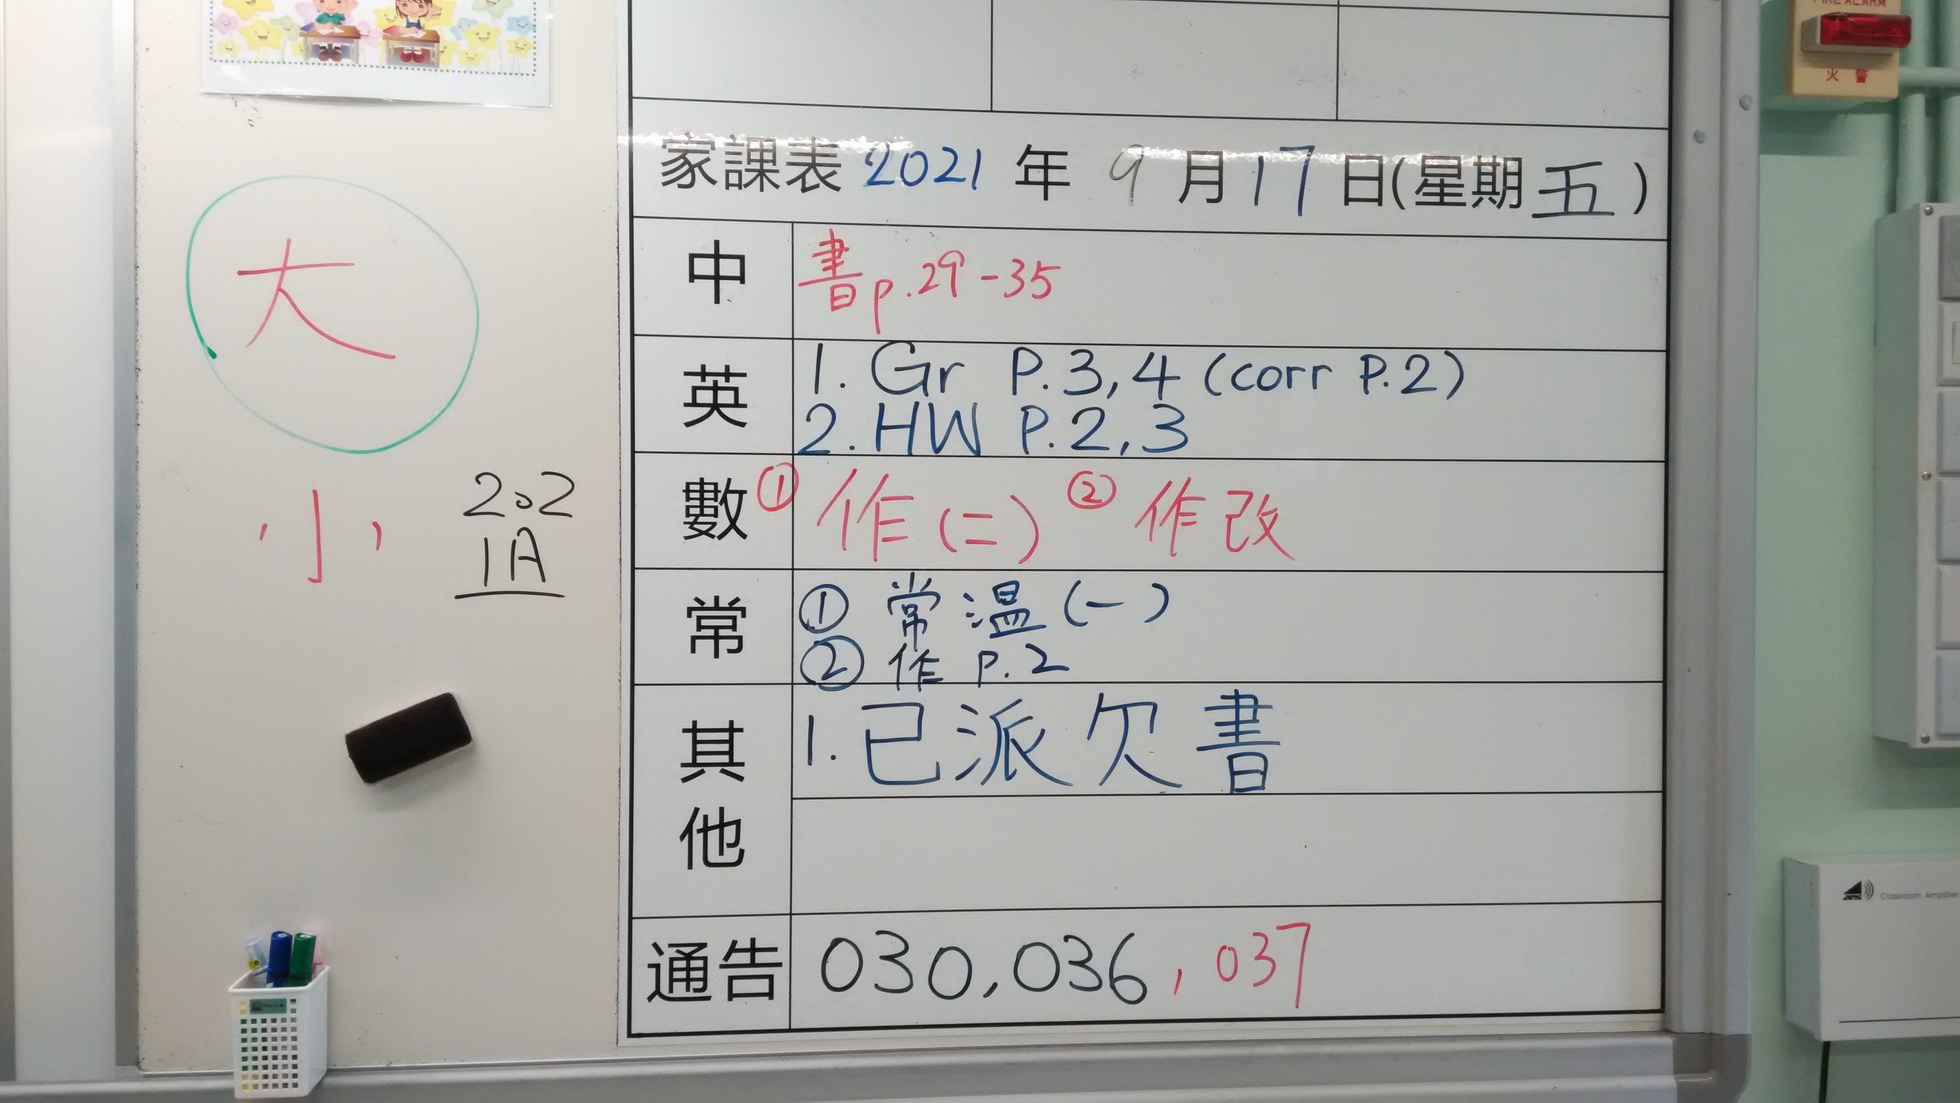 FIRE ALARM
火 警
家課表 2021 年 9 月 17 日(星期五)
中
書p.29-35
英
1. Gr P.3,4 (corr P.2)
2. HW P.2,3
數
① 作(二) ② 作改
常
① 常溫(一)
② 作 p.2
其他
1. 已派欠書
通告
030, 036, 037
大
小
202
1A
Classroom Amplifier